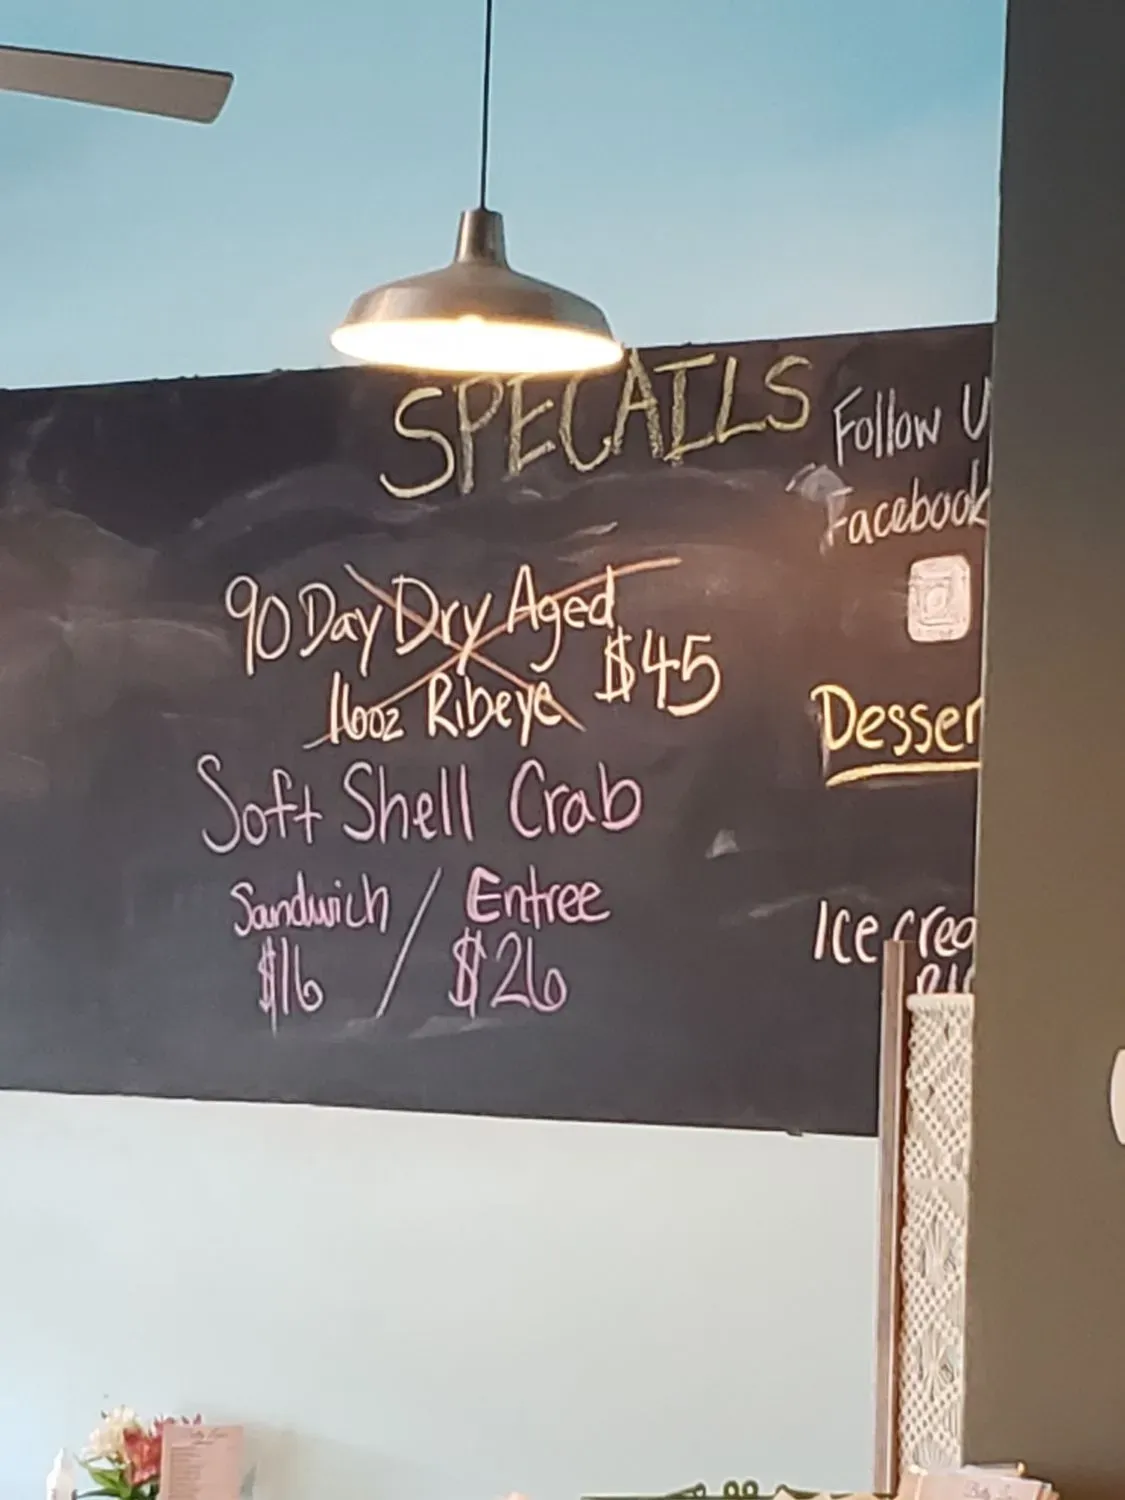 SPECAILS
90 Day Dry Aged
16oz Ribeye $45
Soft Shell Crab
Sandwich / Entree
$16 / $26
Follow U
Facebook
Desser
Ice crea